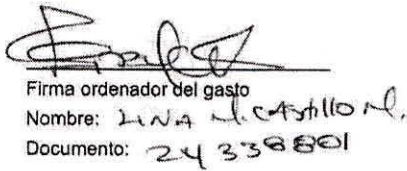 Firma ordenador del gasto
Nombre: LINA M. CAstillo M.
Documento: 24338801